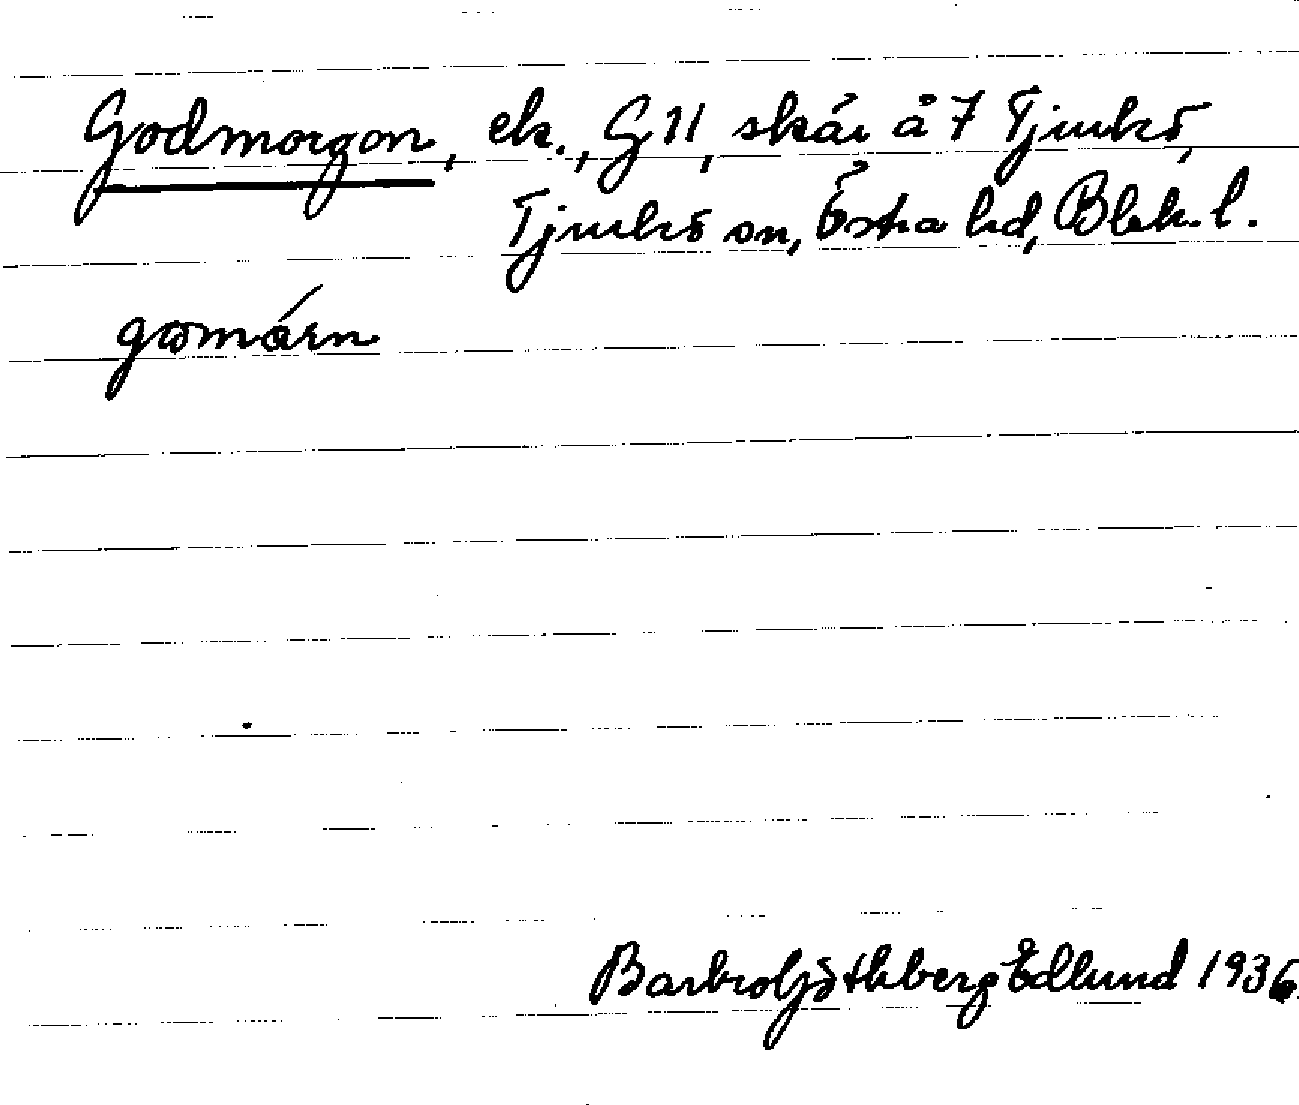 Godmorgon, ek., G 11, skär å 7 Tjurkö,
Tjurkö sn, Östra hd, Blek. l.
gomárn
Barbro Göthberg Edlund 1936.